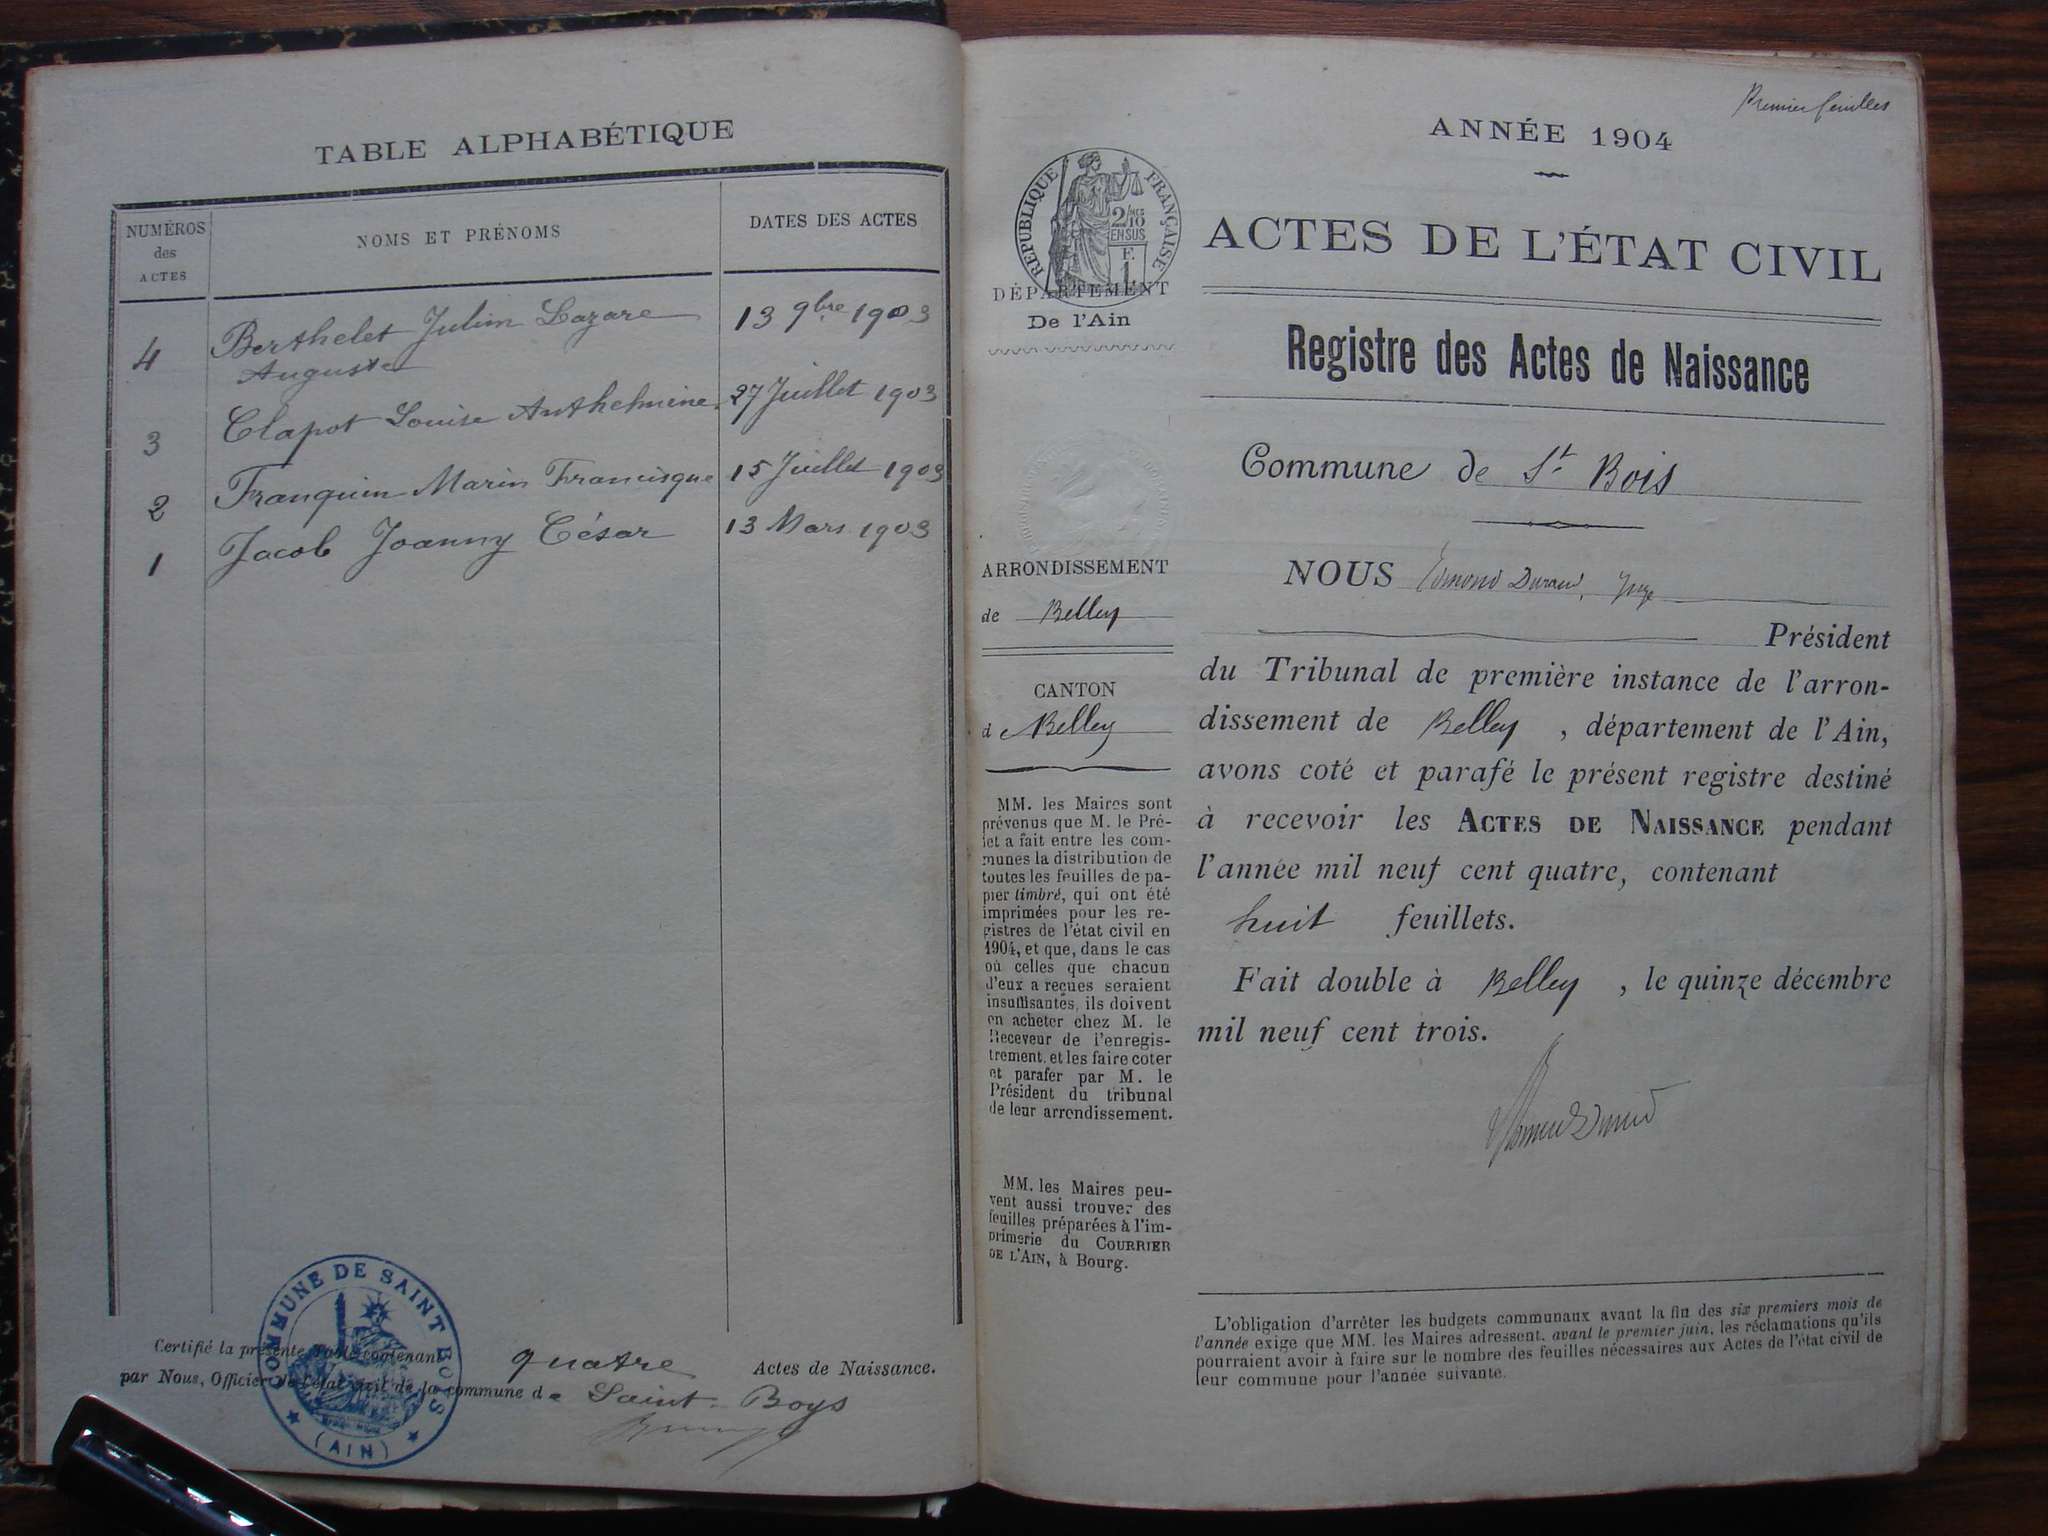 TABLE ALPHABÉTIQUE
NUMÉROS
des
ACTES
NOMS ET PRÉNOMS
DATES DES ACTES
4 Berthelet Julien Lazare 13 9bre 1903
Auguste
3 Clapot Louise Anthelmine 27 Juillet 1903
2 Franquin Marin Francisque 15 Juillet 1903
1 Jacob Joanny César 13 Mars 1903
Certifié la présente Table contenant quatre Actes de Naissance.
par Nous, Officier de l'état civil de la commune de Saint-Boys
COMMUNE DE SAINT BOIS
(AIN)
Premier feuillet
ANNÉE 1904
RÉPUBLIQUE FRANÇAISE
2/10 EN SUS
ACTES DE L'ÉTAT CIVIL
DÉPARTEMENT
De l'Ain
Registre des Actes de Naissance
Commune de St. Bois
ARRONDISSEMENT
de Belley
CANTON
de Belley
MM. les Maires sont
prévenus que M. le Pré-
fet a fait entre les com-
munes la distribution de
toutes les feuilles de pa-
pier timbré, qui ont été
imprimées pour les re-
gistres de l'état civil en
1904, et que, dans le cas
où celles que chacun
d'eux a reçues seraient
insuffisantes, ils doivent
en acheter chez M. le
Receveur de l'enregis-
trement, et les faire coter
et parafer par M. le
Président du tribunal
de leur arrondissement.
MM. les Maires peu-
vent aussi trouver des
feuilles préparées à l'im-
primerie du COURRIER
DE L'AIN, à Bourg.
NOUS Edmond Durand, Juge
Président
du Tribunal de première instance de l'arron-
dissement de Belley, département de l'Ain,
avons coté et parafé le présent registre destiné
à recevoir les ACTES DE NAISSANCE pendant
l'année mil neuf cent quatre, contenant
huit feuillets.
Fait double à Belley, le quinze décembre
mil neuf cent trois.
L'obligation d'arrêter les budgets communaux avant la fin des six premiers mois de
l'année exige que MM. les Maires adressent, avant le premier juin, les réclamations qu'ils
pourraient avoir à faire sur le nombre des feuilles nécessaires aux Actes de l'état civil de
leur commune pour l'année suivante.